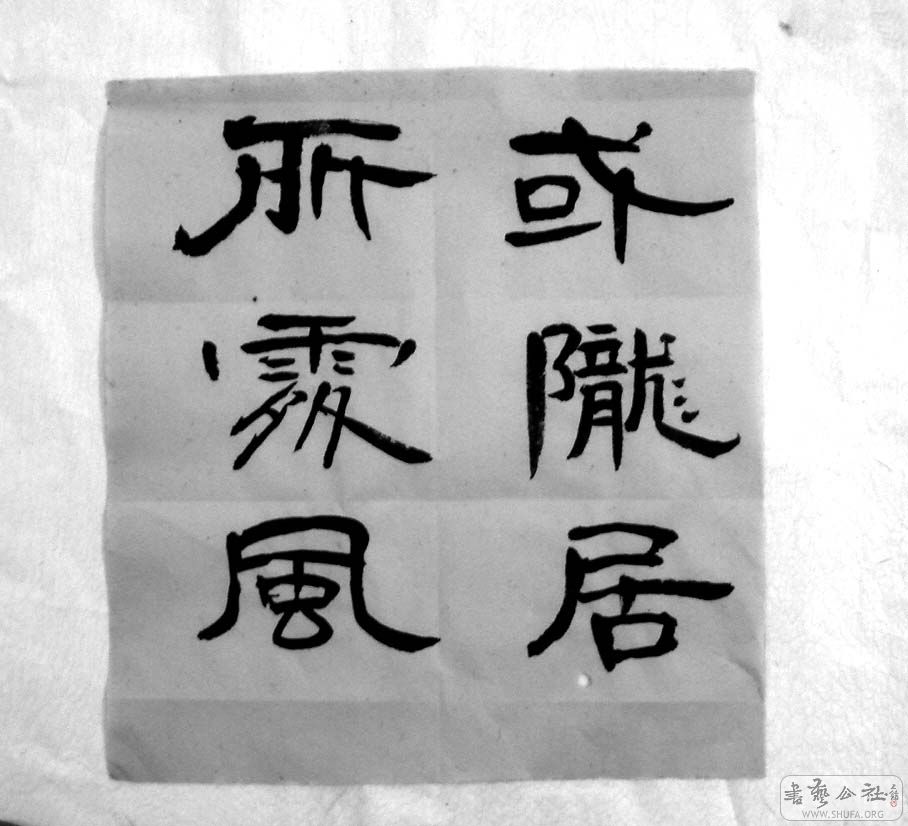 或隴居
所處風
書藝公社
WWW.SHUFA.ORG